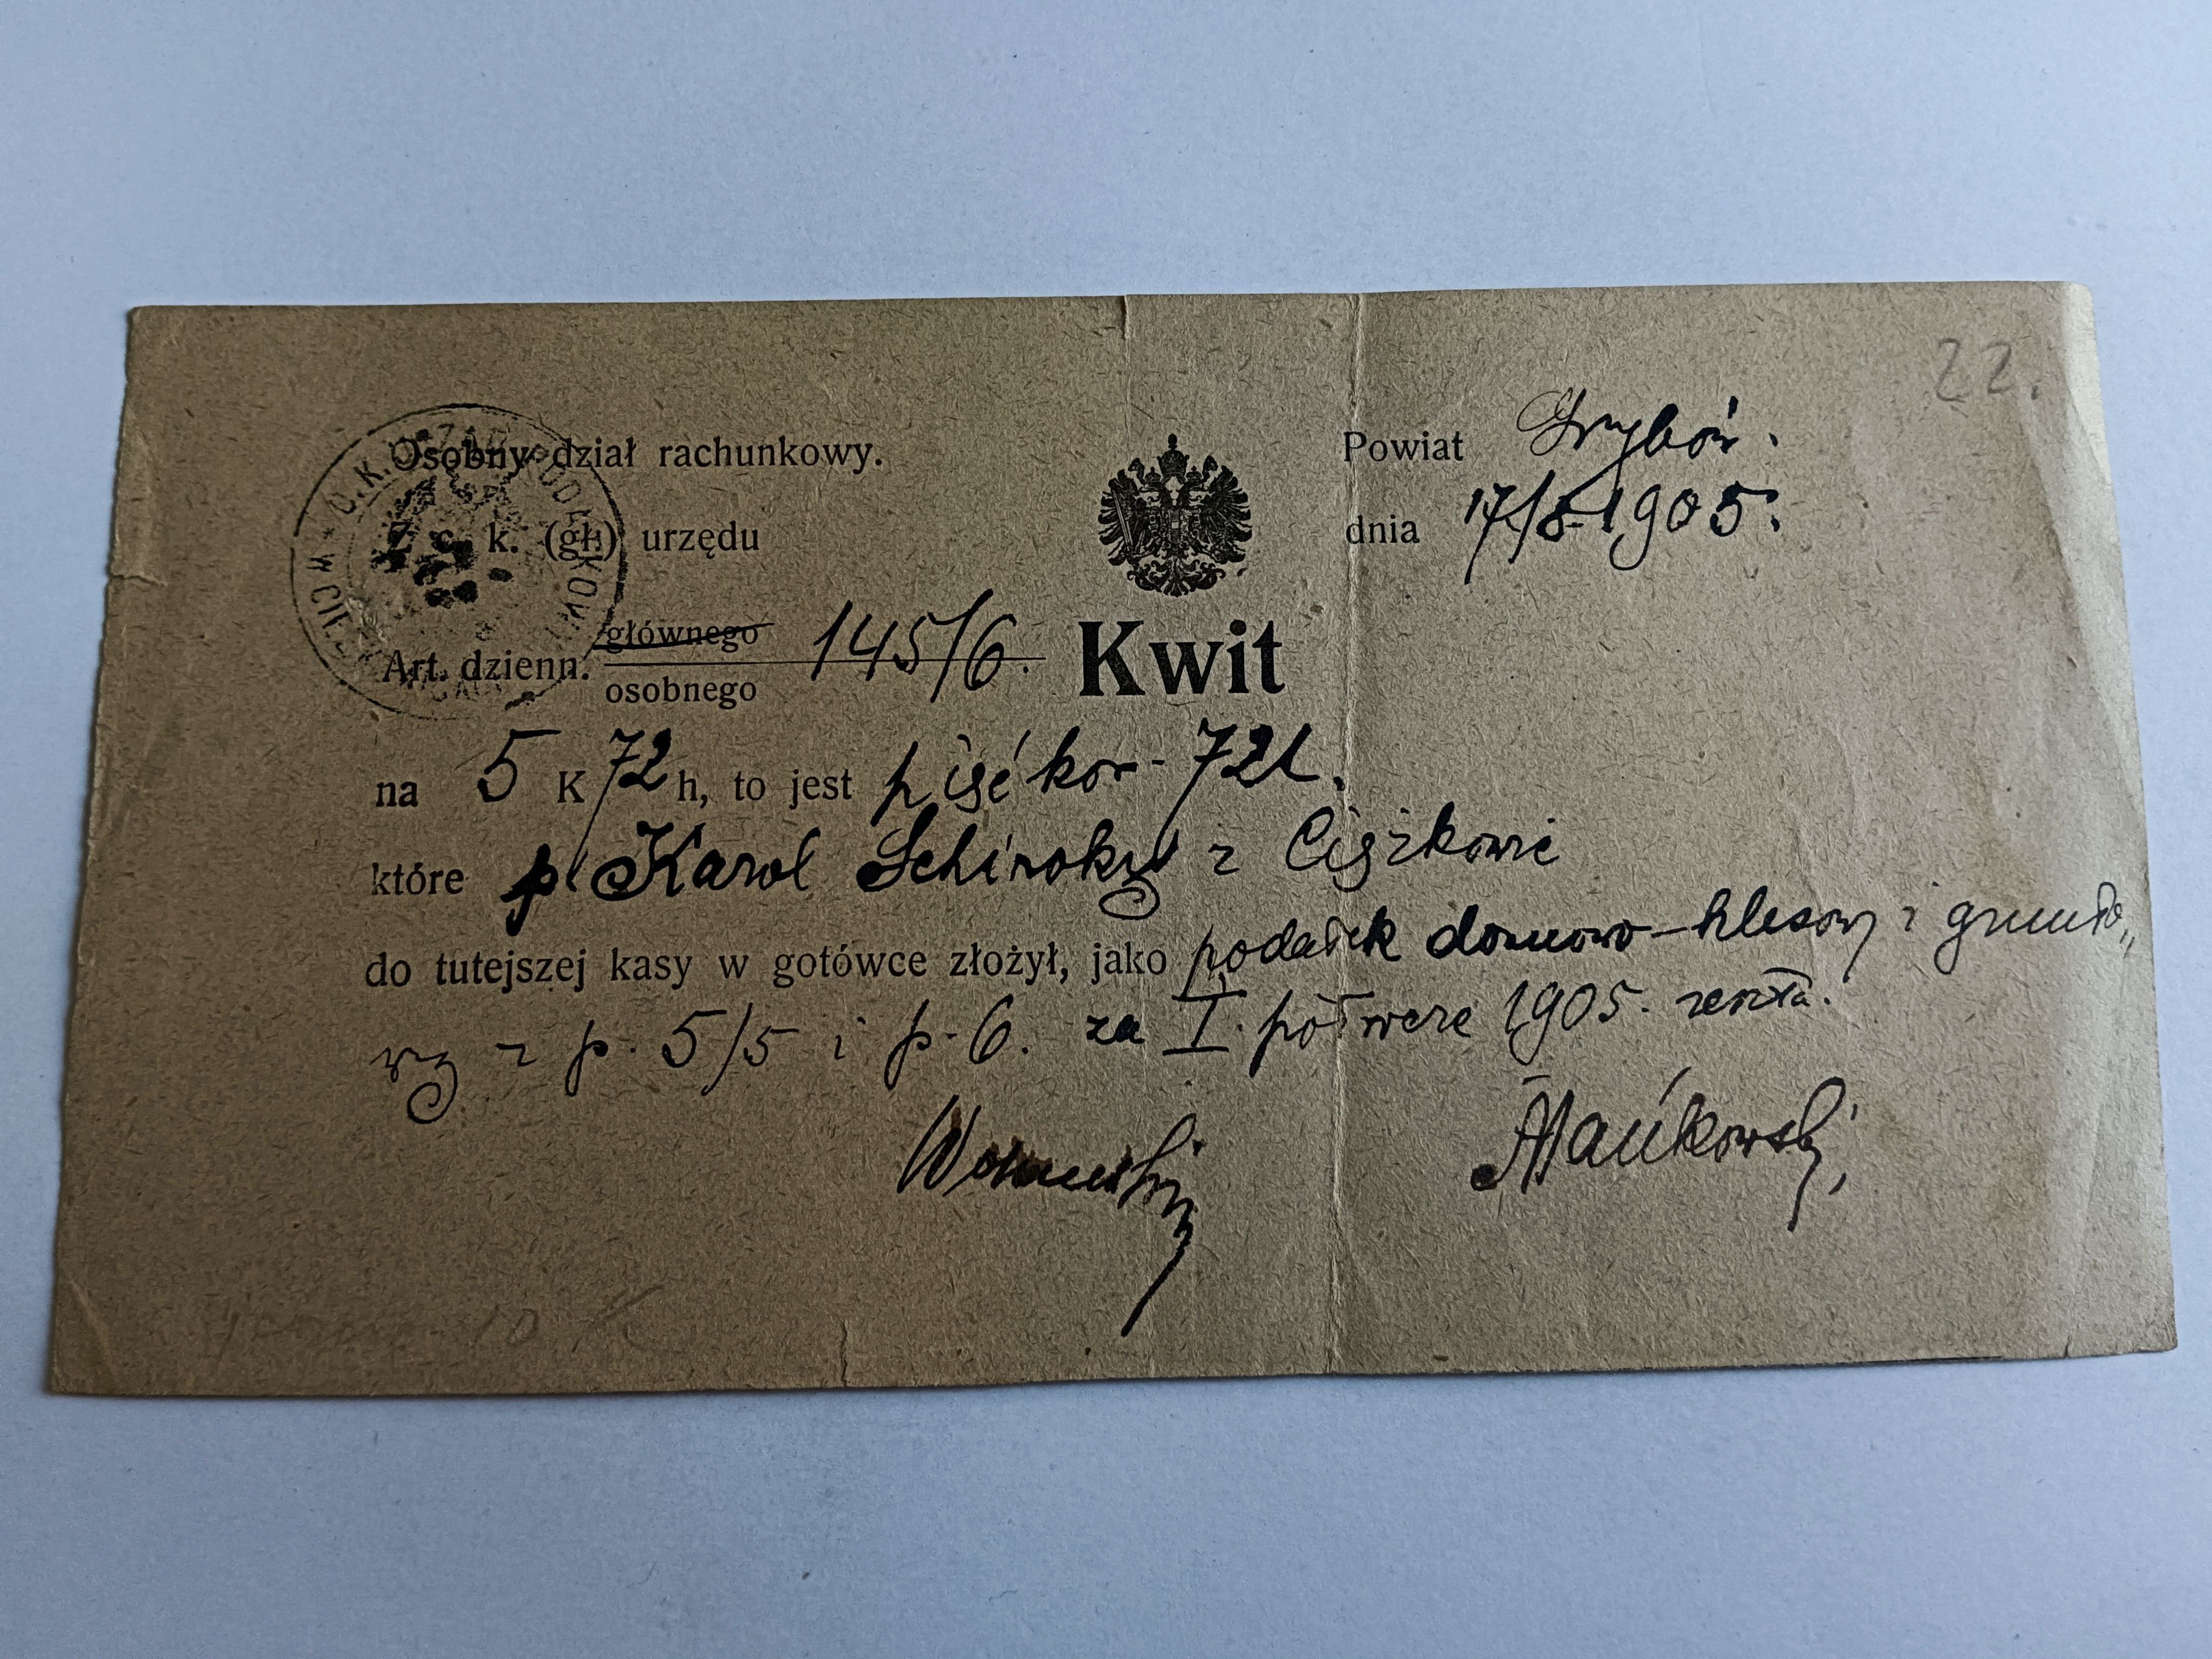 22.
Osobny dział rachunkowy.
Powiat Grybów.
Z c. k. (gł.) urzędu
dnia 17/8 1905.
głównego
Art. dzienn. 145/6.
osobnego
Kwit
na 5 K 72 h, to jest pięć kor 72h.
które p. Karol Schiroky z Ciężkowic
do tutejszej kasy w gotówce złożył, jako podatek domowo-klasowy i grunto„
wy z p. 5/5 i p. 6. za I. półrocze 1905.
Mańkowski